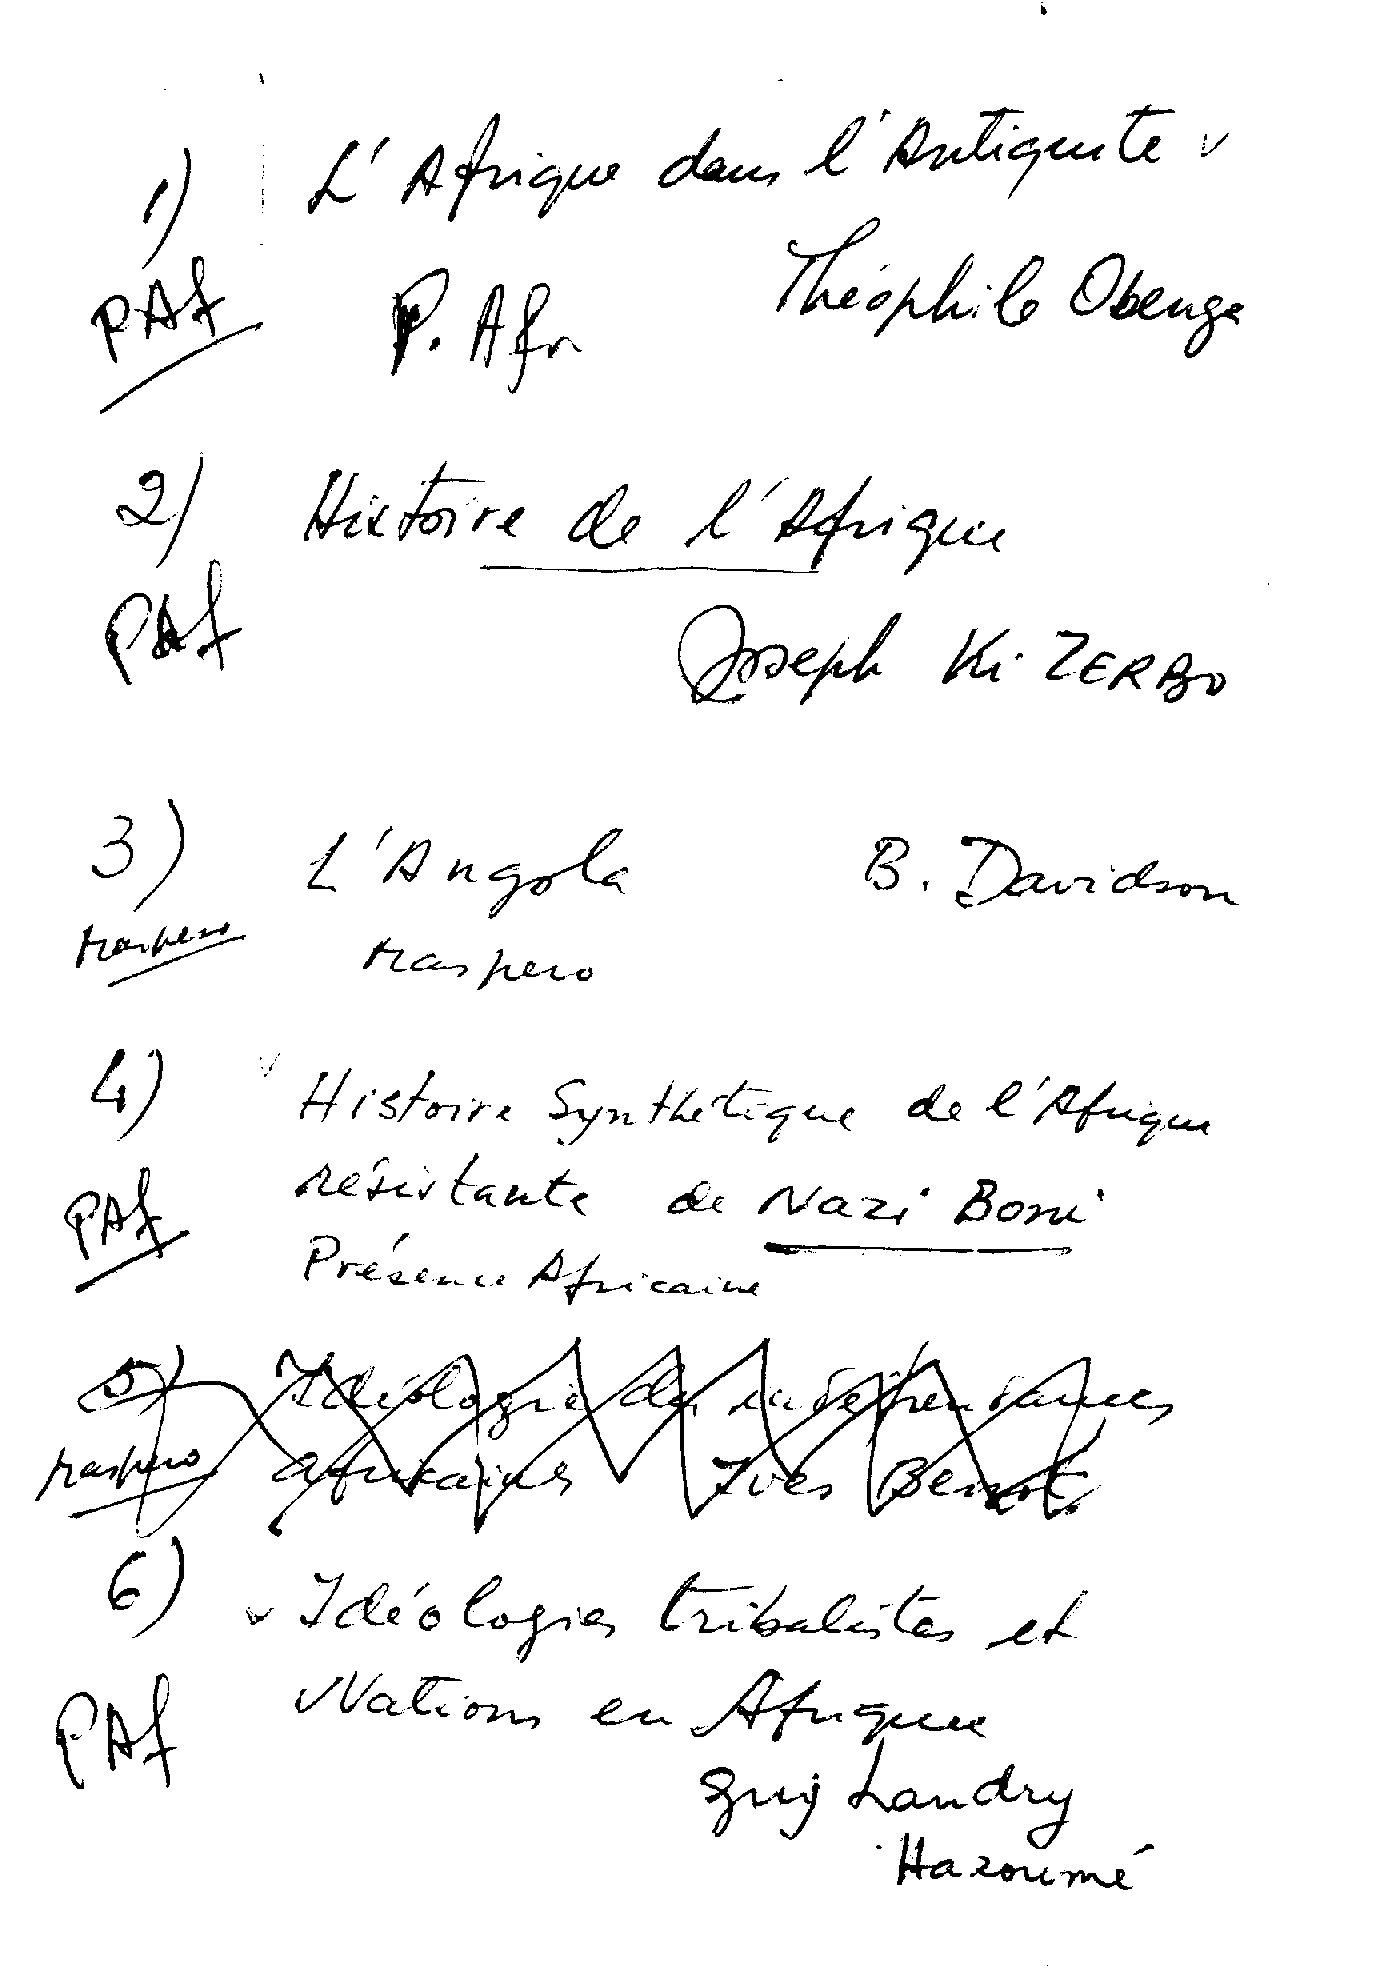 1) L'Afrique dans l'Antiquité v
PAf P. Afr Théophile Obenga
2) Histoire de l'Afrique
PAf Joseph Ki. ZERBO
3) L'Angola B. Davidson
Maspero Maspero
4) v Histoire Synthétique de l'Afrique
résistante de Nazi Boni
PAf Présence Africaine
5) Idéologie des indépendances
Maspero africaines Yves Benot
6) v Idéologies tribalistes et
Nations en Afrique
PAf Guy Landry
Hazoumé